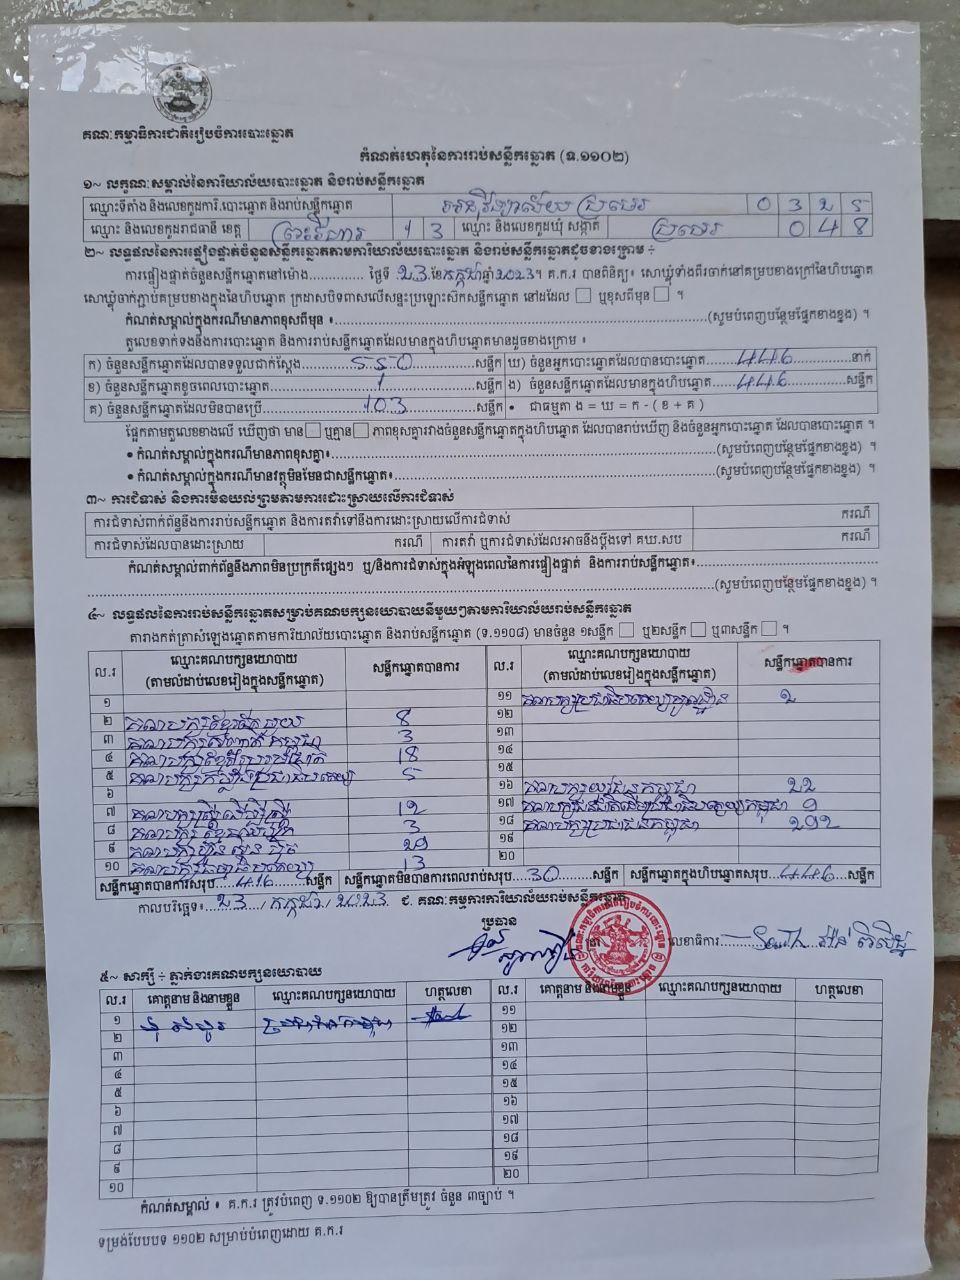 គណៈកម្មាធិការជាតិរៀបចំការបោះឆ្នោត
កំណត់ហេតុនៃការរាប់សន្លឹកឆ្នោត (ទ.១១០២)
១~ លក្ខណៈសម្គាល់នៃការិយាល័យបោះឆ្នោត និងរាប់សន្លឹកឆ្នោត
ឈ្មោះទីតាំង និងលេខកូដការិ.បោះឆ្នោត និងរាប់សន្លឹកឆ្នោត 0 3 2 5
ឈ្មោះ និងលេខកូដរាជធានី ខេត្ត ព្រះវិហារ 1 3 ឈ្មោះ និងលេខកូដឃុំ សង្កាត់ ប្រមេរ 0 4 8
២~ លទ្ធផលនៃការផ្ទៀងផ្ទាត់ចំនួនសន្លឹកឆ្នោតតាមការិយាល័យបោះឆ្នោត និងរាប់សន្លឹកឆ្នោតដូចខាងក្រោម ÷
ការផ្ទៀងផ្ទាត់ចំនួនសន្លឹកឆ្នោតនៅម៉ោង............. ថ្ងៃទី 23 ខែ កក្កដា ឆ្នាំ 2023។ គ.ក.រ បានពិនិត្យ៖ សោឃ្មុំទាំងពីរចាក់នៅគម្របខាងក្រៅនៃហិបឆ្នោត
សោឃ្មុំចាក់ភ្ជាប់គម្របខាងក្នុងនៃហិបឆ្នោត ក្រដាសបិទពាសលើសន្ទះប្រឡោះស៊កសន្លឹកឆ្នោត នៅដដែល ☐ ឬខុសពីមុន ☐ ។
កំណត់សម្គាល់ក្នុងករណីមានភាពខុសពីមុន ៖...............(សូមបំពេញបន្ថែមផ្នែកខាងខ្នង) ។
តួលេខទាក់ទងនឹងការបោះឆ្នោត និងការរាប់សន្លឹកឆ្នោតដែលមានក្នុងហិបឆ្នោតមានដូចខាងក្រោម ៖
ក) ចំនួនសន្លឹកឆ្នោតដែលបានទទួលជាក់ស្ដែង........550........សន្លឹក ឃ) ចំនួនអ្នកបោះឆ្នោតដែលបានបោះឆ្នោត......446......នាក់
ខ) ចំនួនសន្លឹកឆ្នោតខូចពេលបោះឆ្នោត........1........សន្លឹក ង) ចំនួនសន្លឹកឆ្នោតដែលមានក្នុងហិបឆ្នោត......446......សន្លឹក
គ) ចំនួនសន្លឹកឆ្នោតដែលមិនបានប្រើ........103........សន្លឹក • ជាធម្មតា ង = ឃ = ក - ( ខ + គ )
ផ្អែកតាមតួលេខខាងលើ ឃើញថា មាន ☐ ឬគ្មាន ☐ ភាពខុសគ្នារវាងចំនួនសន្លឹកឆ្នោតក្នុងហិបឆ្នោត ដែលបានរាប់ឃើញ និងចំនួនអ្នកបោះឆ្នោត ដែលបានបោះឆ្នោត ។
• កំណត់សម្គាល់ក្នុងករណីមានភាពខុសគ្នា៖...............(សូមបំពេញបន្ថែមផ្នែកខាងខ្នង) ។
• កំណត់សម្គាល់ក្នុងករណីមានវត្ថុមិនមែនជាសន្លឹកឆ្នោត៖...............(សូមបំពេញបន្ថែមផ្នែកខាងខ្នង) ។
៣~ ការជំទាស់ និងការមិនយល់ព្រមតាមការដោះស្រាយលើការជំទាស់
ការជំទាស់ពាក់ព័ន្ធនឹងការរាប់សន្លឹកឆ្នោត និងការតវ៉ាទៅនឹងការដោះស្រាយលើការជំទាស់ ករណី
ការជំទាស់ដែលបានដោះស្រាយ ករណី ការតវ៉ា ឬការជំទាស់ដែលអាចនឹងប្ដឹងទៅ គឃ.សប ករណី
កំណត់សម្គាល់ពាក់ព័ន្ធនឹងភាពមិនប្រក្រតីផ្សេងៗ ឬ/និងការជំទាស់ក្នុងអំឡុងពេលនៃការផ្ទៀងផ្ទាត់ និងការរាប់សន្លឹកឆ្នោត៖...............
...............(សូមបំពេញបន្ថែមផ្នែកខាងខ្នង) ។
៤~ លទ្ធផលនៃការរាប់សន្លឹកឆ្នោតសម្រាប់គណបក្សនយោបាយនីមួយៗតាមការិយាល័យរាប់សន្លឹកឆ្នោត
តារាងកត់ត្រាសំឡេងឆ្នោតតាមការិយាល័យបោះឆ្នោត និងរាប់សន្លឹកឆ្នោត (ទ.១១០៨) មានចំនួន ១សន្លឹក ☐ ឬ២សន្លឹក ☐ ឬ៣សន្លឹក ☐ ។
ល.រ ឈ្មោះគណបក្សនយោបាយ (តាមលំដាប់លេខរៀងក្នុងសន្លឹកឆ្នោត) សន្លឹកឆ្នោតបានការ ល.រ ឈ្មោះគណបក្សនយោបាយ (តាមលំដាប់លេខរៀងក្នុងសន្លឹកឆ្នោត) សន្លឹកឆ្នោតបានការ
១ ១១ គណបក្សប្រជាធិបតេយ្យមូលដ្ឋាន 2
២ គណបក្សខ្មែរតែមួយ 8 ១២
៣ 3 ១៣
៤ 18 ១៤
៥ គណបក្សកម្លាំងប្រជាធិបតេយ្យ 5 ១៥
៦ ១៦ គណបក្សយុវជនកម្ពុជា 22
៧ គណបក្សស្ត្រីដើម្បីស្ត្រី 12 ១៧ គណបក្សជនជាតិដើមប្រជាធិបតេយ្យកម្ពុជា 9
៨ 3 ១៨ គណបក្សប្រជាជនកម្ពុជា 292
៩ គណបក្សហ្វ៊ុនស៊ិនប៉ិច 29 ១៩
១០ 13 ២០
សន្លឹកឆ្នោតបានការសរុប....416....សន្លឹក សន្លឹកឆ្នោតមិនបានការពេលរាប់សរុប....30....សន្លឹក សន្លឹកឆ្នោតក្នុងហិបឆ្នោតសរុប....446....សន្លឹក
កាលបរិច្ឆេទ៖...23.../ កក្កដា / 2023 ជ. គណៈកម្មការការិយាល័យរាប់សន្លឹកឆ្នោត
ប្រធាន
លេខាធិការ
៥~ សាក្សី ÷ ភ្នាក់ងារគណបក្សនយោបាយ
ល.រ គោត្តនាម និងនាមខ្លួន ឈ្មោះគណបក្សនយោបាយ ហត្ថលេខា ល.រ គោត្តនាម និងនាមខ្លួន ឈ្មោះគណបក្សនយោបាយ ហត្ថលេខា
១ ប្រជាជនកម្ពុជា ១១
២ ១២
៣ ១៣
៤ ១៤
៥ ១៥
៦ ១៦
៧ ១៧
៨ ១៨
៩ ១៩
១០ ២០
កំណត់សម្គាល់ ៖ គ.ក.រ ត្រូវបំពេញ ទ.១១០២ ឱ្យបានត្រឹមត្រូវ ចំនួន ៣ច្បាប់ ។
ទម្រង់បែបបទ ១១០២ សម្រាប់បំពេញដោយ គ.ក.រ